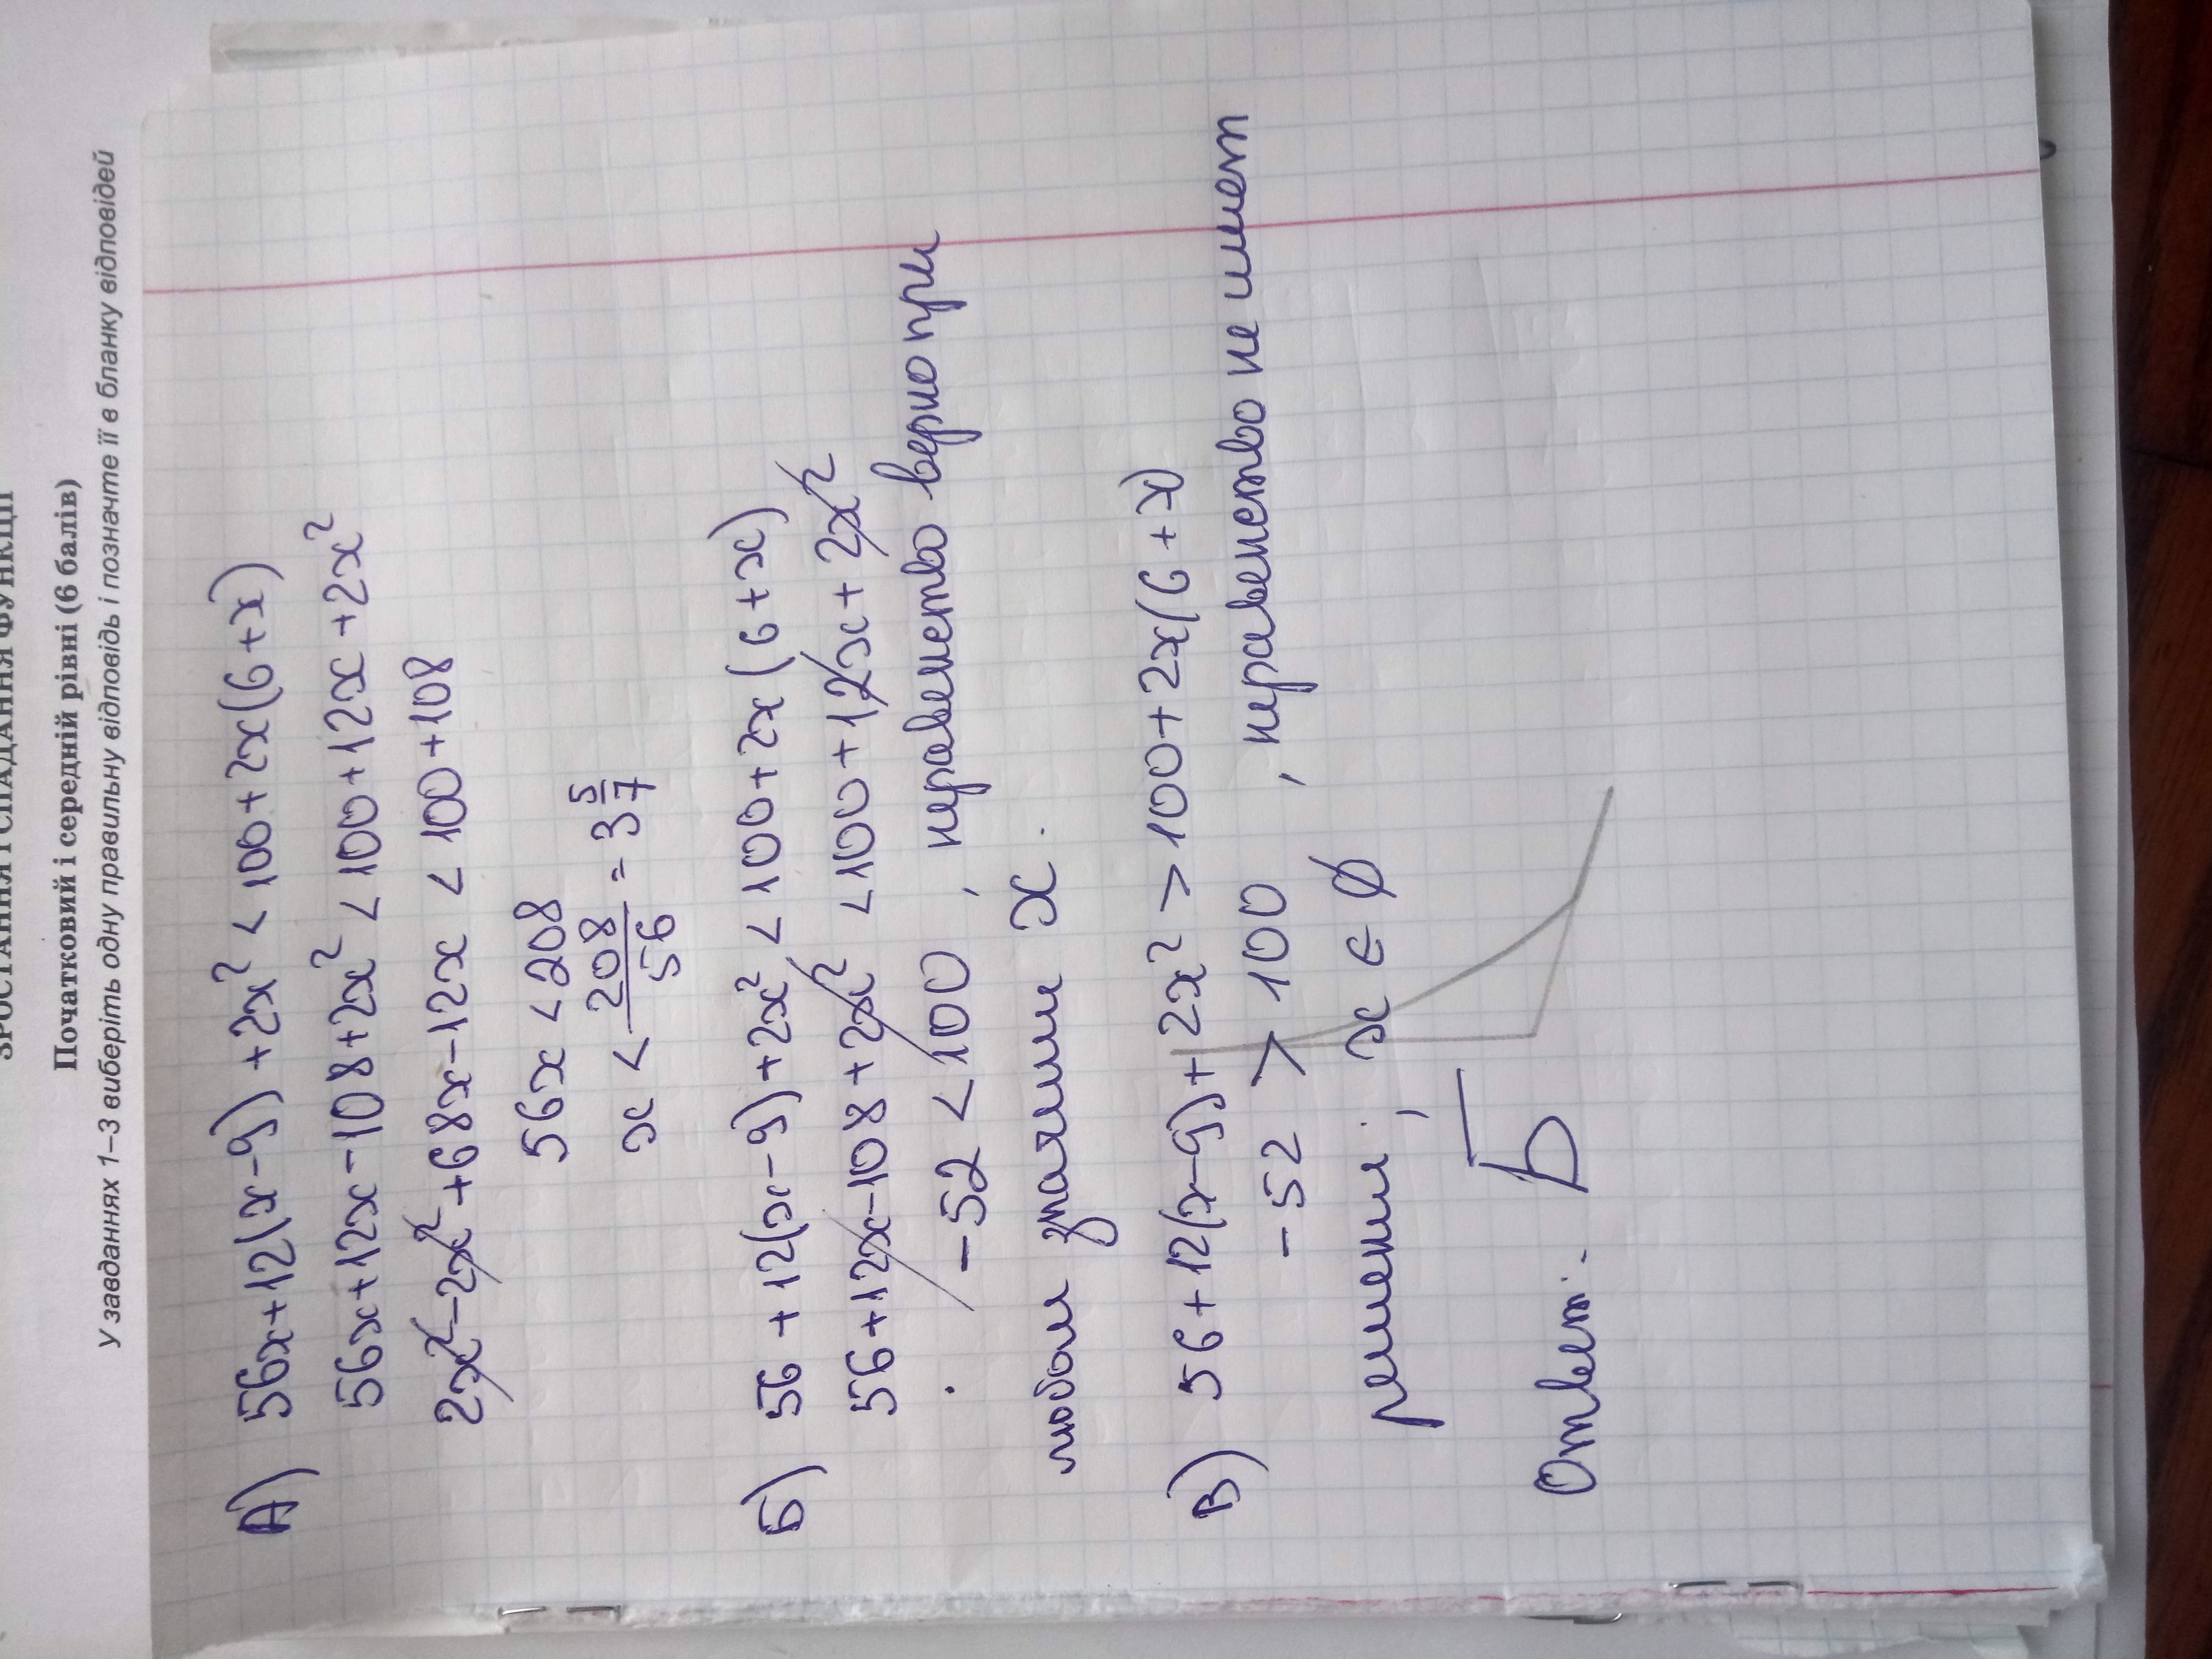 ЗРОСТАННЯ І СПАДАННЯ ФУНКЦІЇ
Початковий і середній рівні (6 балів)
У завданнях 1–3 виберіть одну правильну відповідь і позначте її в бланку відповідей
А) 56x+12(x-9)+2x² < 100+2x(6+x)
56x+12x-108+2x² < 100+12x+2x²
2x²-2x²+68x-12x < 100+108
56x < 208
x < 208/56 = 3 5/7
Б) 56+12(x-9)+2x² < 100+2x(6+x)
56+12x-108+2x² < 100+12x+2x²
-52 < 100, неравенство верно при
любом значении x.
В) 56+12(x-9)+2x² > 100+2x(6+x)
-52 > 100, неравенство не имеет
решений; x ∈ ∅
Ответ: Б